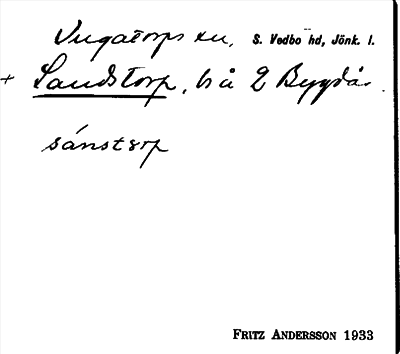 Vngatorps sn, S. Vedbo hd, Jönk. l.
+ Sandstorp, bs å 2 Bygdås.
sánstorp
FRITZ ANDERSSON 1933